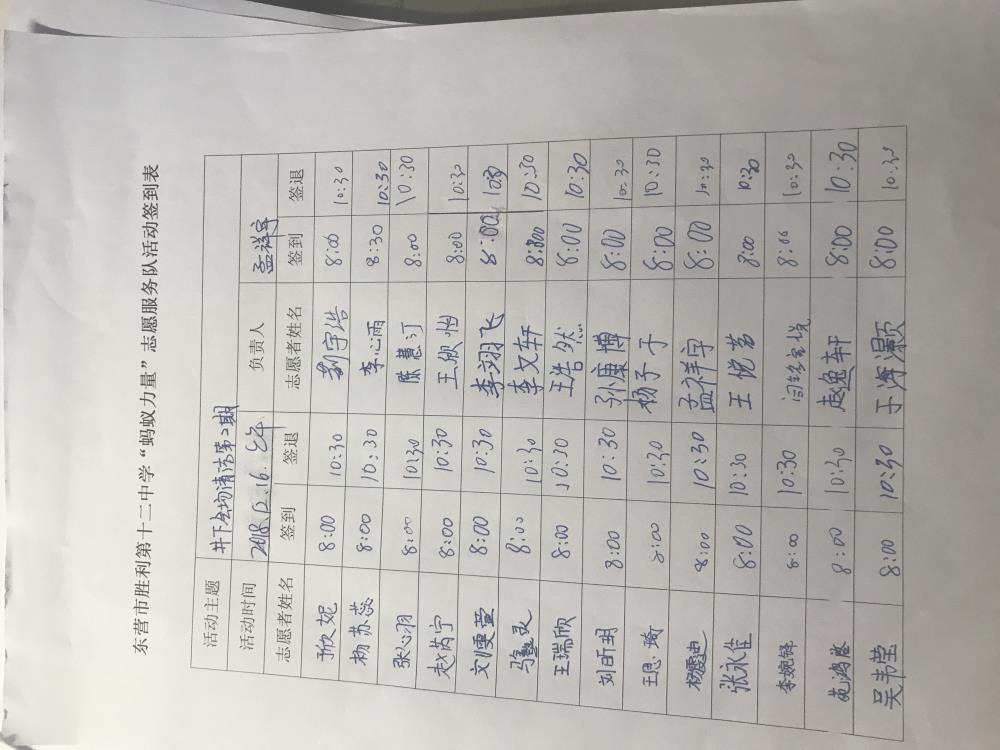 东营市胜利第十二中学“蚂蚁力量”志愿服务队活动签到表
活动主题 井下全场清洁第2期
活动时间 2018.12.16. 上午 负责人 孟祥宇
志愿者姓名 签到 签退 志愿者姓名 签到 签退
于欣妮 8:00 10:30 荆宇浩 8:00 10:30
杨苏蕊 8:00 10:30 李心雨 8:30 10:30
张心羽 8:00 10:30 陈慧汀 8:00 10:30
赵芮宁 8:00 10:30 王欣怡 8:00 10:30
刘雯萱 8:00 10:30 李翊飞 8:00
8:00 10:30 李文轩 10:30
王瑞欣 8:00 10:30 王浩然 8:00 10:30
刘昕玥 8:00 10:30 孙康博 8:00 10:30
王思琦 8:00 10:30 杨子于 8:00 10:30
杨霞迪 8:00 10:30 孟祥宇 8:00 10:30
张永佳 8:00 10:30 王悦茗 8:00 10:30
李婉铎 8:00 10:30 8:00 10:30
苑鸿盛 8:00 10:30 赵逸轩 8:00 10:30
吴韦莹 8:00 10:30 于海灏 8:00 10:30